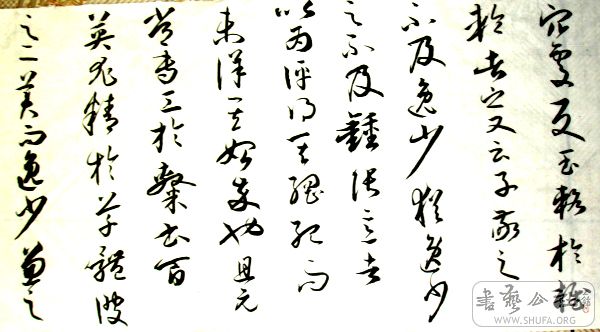 穴處反玉輅於椎
輪者乎又云子敬之
不及逸少猶逸少
之不及鍾張意者
以為評得其綱紀而
未詳其始卒也且元
常專工於隸書百
英尤精於草體彼
之二美而逸少兼之
書藝公社
WWW.SHUFA.ORG